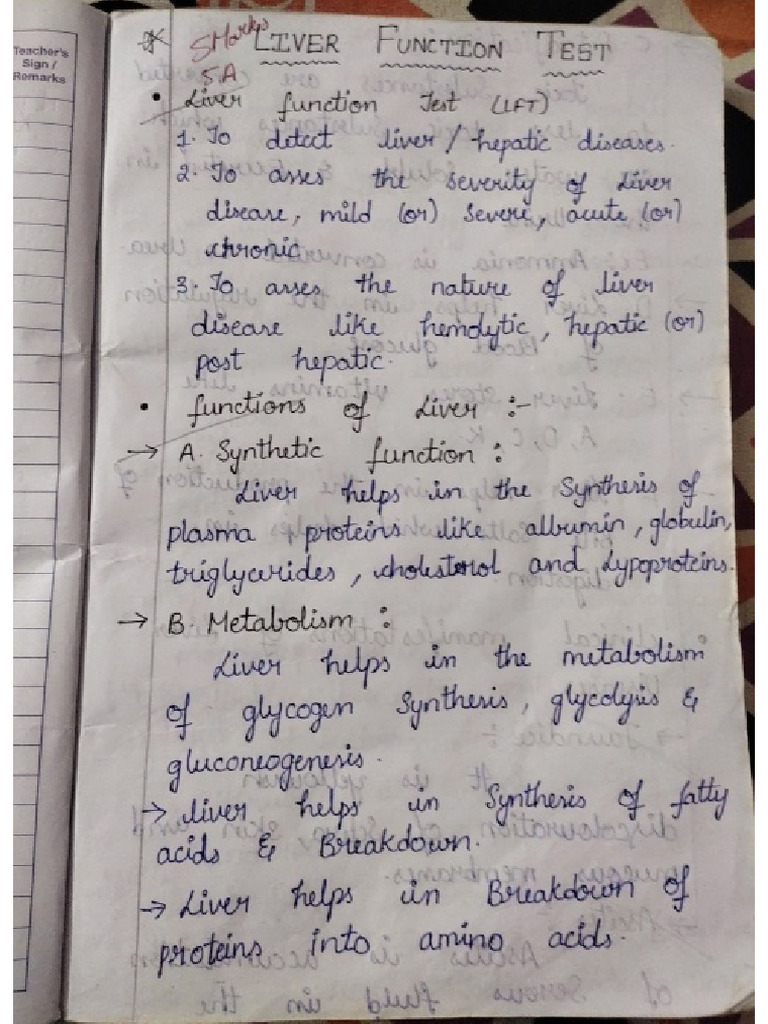 Teacher's
Sign /
Remarks
5Marks
S.A
LIVER FUNCTION TEST
• Liver function Test (LFT)
1. To detect liver / hepatic diseases.
2. To asses the severity of Liver
disease, mild (or) severe, acute (or)
chronic
3. To asses the nature of liver
disease like hemolytic, hepatic (or)
post hepatic.
• functions of Liver :-
→ A. Synthetic function :
Liver helps in the Synthesis of
plasma proteins like albumin, globulin,
triglycerides, cholesterol and Lypoproteins.
→ B. Metabolism :
Liver helps in the metabolism
of glycogen synthesis, glycolysis &
gluconeogenesis.
→ Liver helps in Synthesis of fatty
acids & Breakdown.
→ Liver helps in Breakdown of
proteins into amino acids.